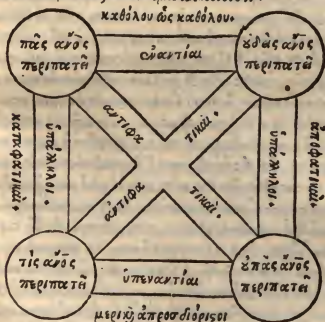 καθόλου ὡς καθόλου·
πᾶς ἄνος
περιπατεῖ
ἐναντίαι
οὐδεὶς ἄνος
περιπατεῖ
καταφατικαὶ·
ὑπάλληλοι·
ἀντιφα
τικαὶ·
ἀντιφα
τικαὶ·
ὑπάλληλοι·
ἀποφατικαὶ·
τὶς ἄνος
περιπατεῖ
ὑπεναντίαι
οὐ πᾶς ἄνος
περιπατεῖ
μερικὴ ἀπροσδιόριστοι